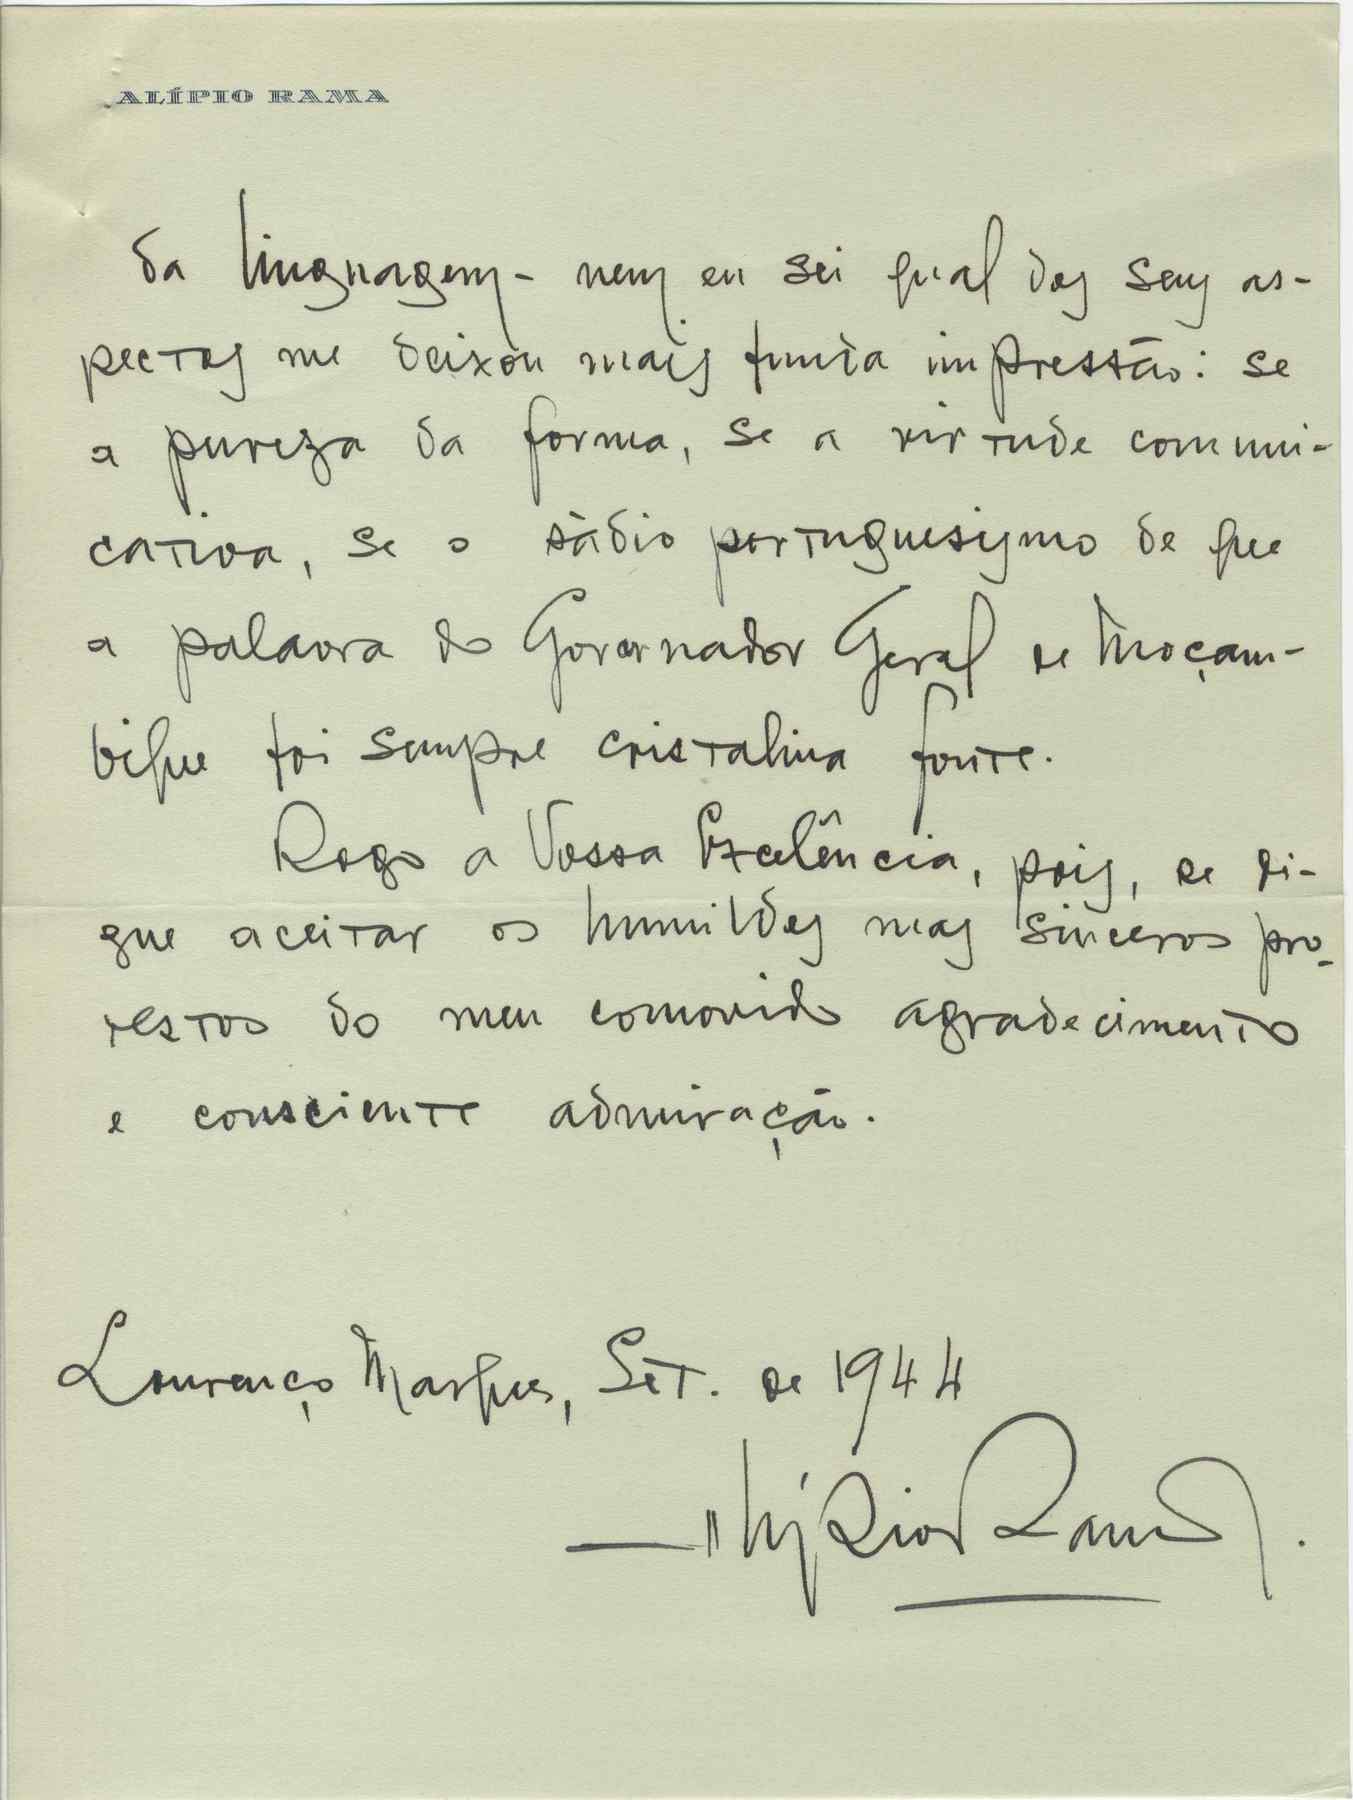 ALÍPIO RAMA
da linguagem - nem eu sei qual dos seus as-
pectos me deixou mais funda impressão: se
a pureza da forma, se a virtude comuni-
cativa, se o sàdio portuguesismo de que
a palavra do Governador Geral de Moçam-
bique foi sempre cristalina fonte.
Rogo a Vossa Excelência, pois, se di-
gne aceitar os humildes mas sinceros pro-
testos do meu comovido agradecimento
e consciente admiração.
Lourenço Marques, Set. de 1944
Alípio Rama.